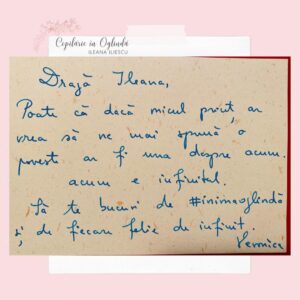 Copilărie în Oglindă
ILEANA ILIESCU
Dragă Ileana,
Poate că dacă micul prinț ar
vrea să ne mai spună o
poveste ar fi una despre acum.
acum e infinitul.
Să te bucuri de #inimaoglindă
și de fiecare felie de infinit.
Vernica